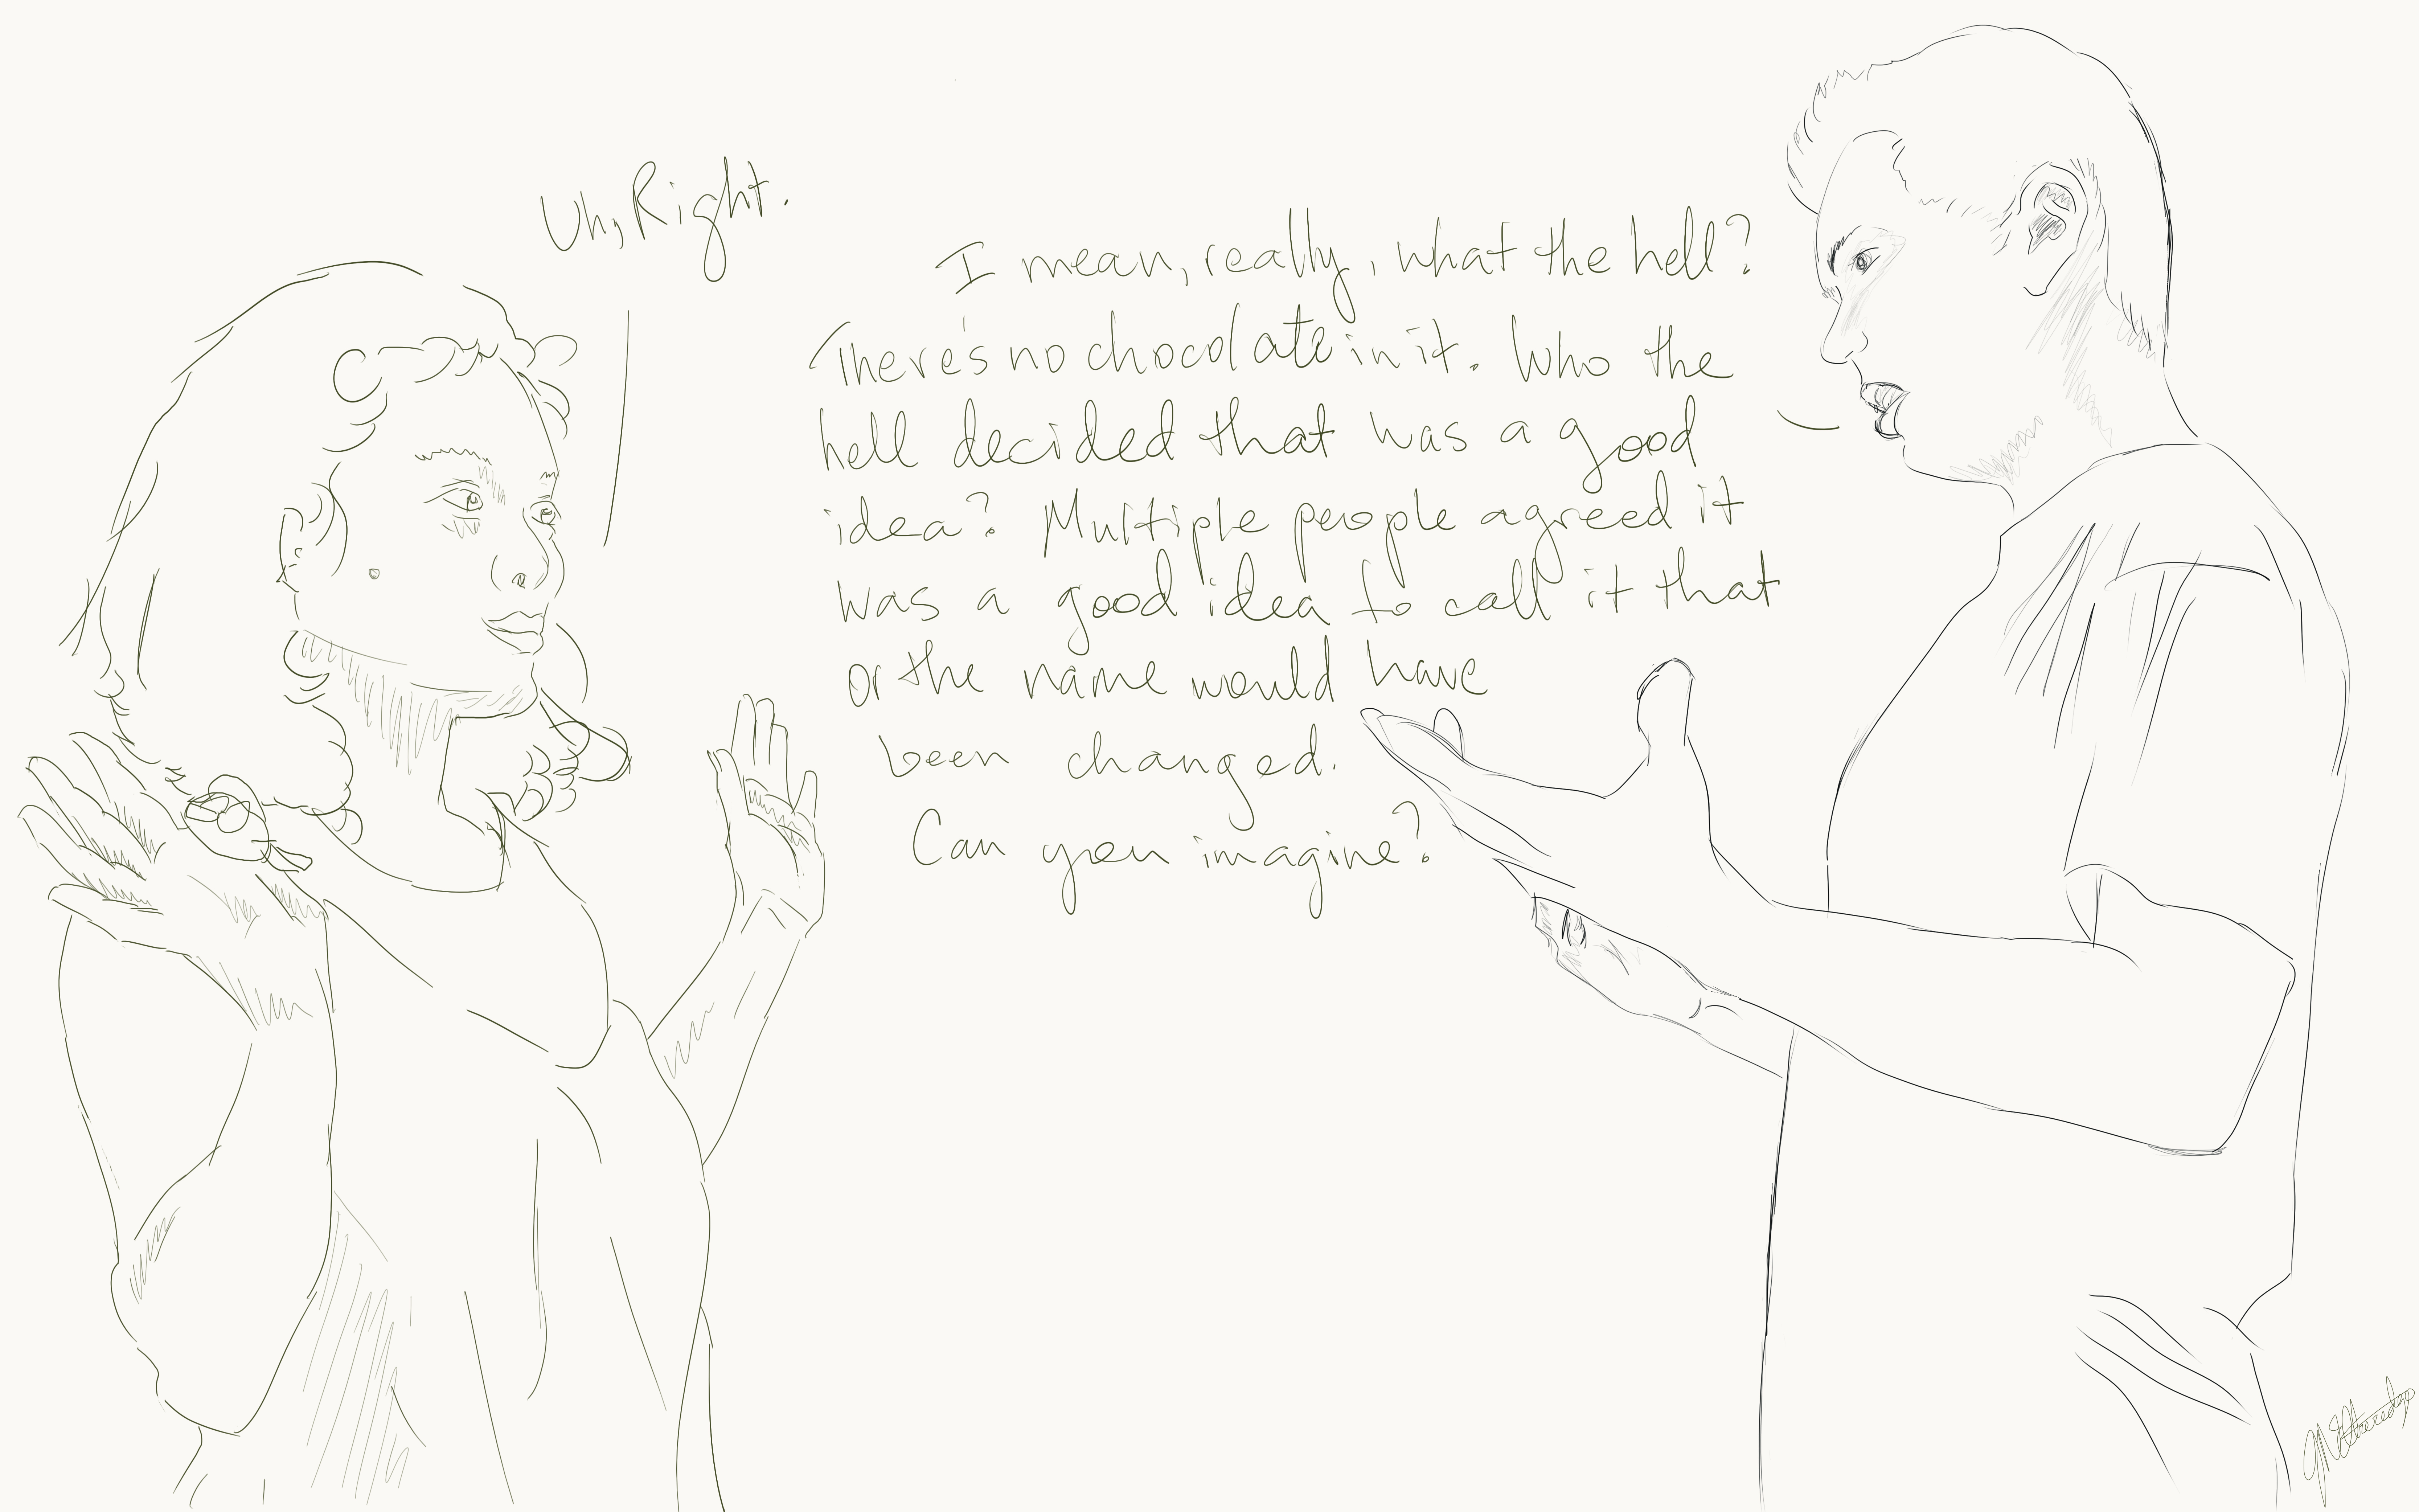 Uh, Right.
I mean, really, what the hell?
There's no chocolate in it. Who the
hell decided that was a good
idea? Multiple people agreed it
was a good idea to call it that
or the name would have
been changed.
Can you imagine?